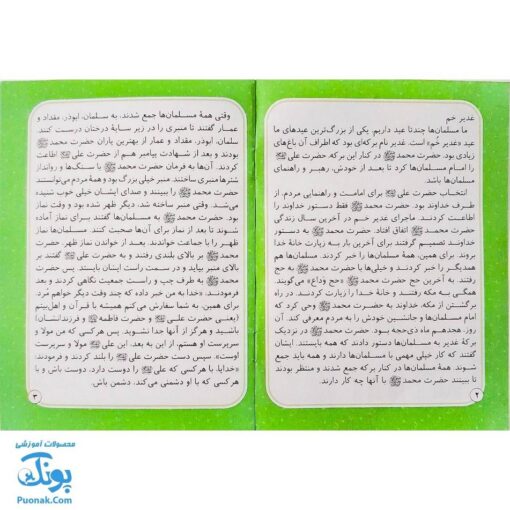 غدیر خم
ما مسلمان‌ها چند تا عید داریم. یکی از بزرگ‌ترین عیدهای ما
عید «غدیر خُم» است. غدیر نام برکه‌ای بود که اطراف آن باغ‌های
زیادی بود. حضرت محمد ﷺ در کنار این برکه، حضرت علی
را امام مسلمان‌ها کرد تا بعد از خودش، رهبر و راهنمای
مسلمان‌ها باشد.
انتخاب حضرت علی برای امامت و راهنمایی مردم، از
طرف خداوند بود. حضرت محمد ﷺ فقط دستور خداوند را
اطاعت کردند. ماجرای غدیر خم در آخرین سال زندگی
حضرت محمد ﷺ اتفاق افتاد. حضرت محمد ﷺ به دستور
خداوند تصمیم گرفتند برای آخرین بار به زیارت خانهٔ خدا
بروند. برای همین، همهٔ مسلمان‌ها را خبر کردند. مسلمان‌ها هم
همدیگر را خبر کردند و خیلی‌ها با حضرت محمد ﷺ به حج
رفتند. به آخرین حج حضرت محمد ﷺ «حج وداع» می‌گویند.
همگی به مکه رفتند و خانهٔ خدا را زیارت کردند. در راه
برگشتن از مکه، خداوند به حضرت محمد ﷺ وحی کرد که
امام مسلمان‌ها و جانشین خودش را به مردم معرفی کند. آن
روز، هجدهم ماه ذی‌حجه بود. حضرت محمد ﷺ در نزدیکی
برکهٔ غدیر به مسلمان‌ها دستور دادند که همه بایستند. ایشان
گفتند که کار خیلی مهمی با مسلمان‌ها دارند و همه باید جمع
شوند. همهٔ مسلمان‌ها در کنار برکه جمع شدند و منتظر بودند
تا ببینند حضرت محمد ﷺ با آنها چه کار دارند.
۲
وقتی همهٔ مسلمان‌ها جمع شدند، به سلمان، ابوذر، مقداد و
عمار گفتند تا منبری را در زیر سایهٔ درختان درست کنند.
سلمان، ابوذر، مقداد و عمار از بهترین یاران حضرت محمد ﷺ
بودند و بعد از شهادت پیامبر هم از حضرت علی اطاعت
کردند. آن‌ها به فرمان حضرت محمد ﷺ با سنگ‌ها و روانداز
شترها منبری ساختند. منبر خیلی بزرگ بود و همهٔ مردم می‌توانستند
حضرت محمد ﷺ را ببینند و صدای ایشان خیلی خوب شنیده
می‌شد. وقتی منبر ساخته شد، دیگر ظهر شده بود و وقت نماز
بود. حضرت محمد ﷺ به مسلمان‌ها گفتند برای نماز آماده
شوند تا بعد از نماز برای آن‌ها صحبت کنند. همهٔ مسلمان‌ها نماز
ظهر را با جماعت خواندند. بعد از خواندن نماز ظهر، حضرت
محمد ﷺ بر بالای بلندی رفتند و به حضرت علی گفتند بر
بالای منبر بیاید و در سمت راست ایشان بایستد. پس حضرت
محمد ﷺ به طرف چپ و راست جمعیت نگاهی کردند و بعد
فرمودند: «خدا به من خبر داده که چند وقت دیگر خواهم مُرد.
برای همین، به شما سفارش می‌کنم همیشه با قرآن و اهل‌بیتم
(یعنی حضرت علی و حضرت فاطمه و فرزندانشان)
باشید و هرگز از آنها جدا نشوید. پس هر کسی که من مولا و
سرپرست او هستم، از این به بعد، این علی مولا و سرپرست
اوست». پس دست حضرت علی را بلند کردند و فرمودند:
«خدایا، با هر کسی که علی را دوست دارد، دوست باش و با
هر کسی که با او دشمنی می‌کند، دشمن باش.
۳
محصولات آموزشی
پونک
Puonak.Com